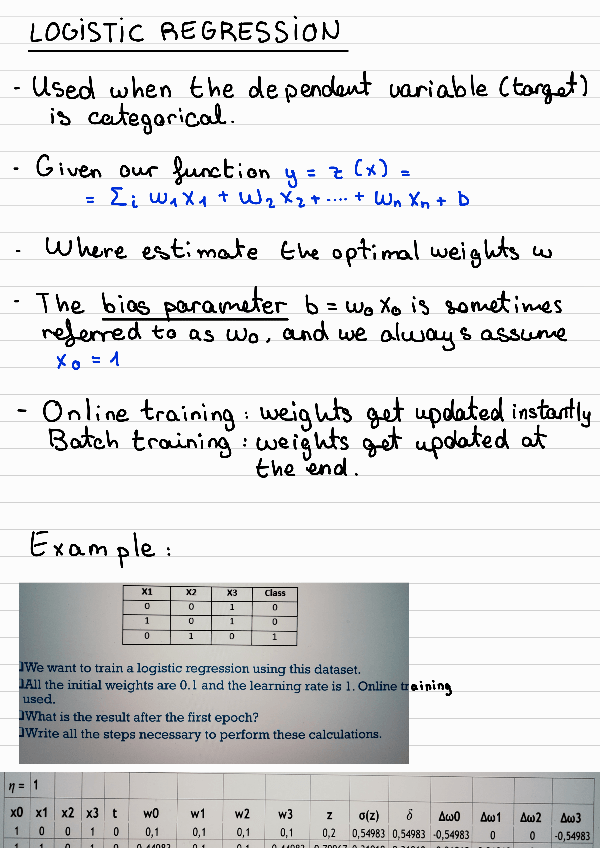 LOGISTIC REGRESSION
- Used when the dependent variable (target)
is categorical.
- Given our function y = z (x) =
= Σi w1x1 + w2x2 + .... + wnxn + b
- Where estimate the optimal weights w
- The bias parameter b = w0x0 is sometimes
referred to as w0, and we always assume
x0 = 1
- Online training : weights get updated instantly
Batch training : weights get updated at
the end.
Example :
X1 X2 X3 Class
0 0 1 0
1 0 1 0
0 1 0 1
We want to train a logistic regression using this dataset.
All the initial weights are 0.1 and the learning rate is 1. Online training
used.
What is the result after the first epoch?
Write all the steps necessary to perform these calculations.
η = 1
x0 x1 x2 x3 t w0 w1 w2 w3 z σ(z) δ Δω0 Δω1 Δω2 Δω3
1 0 0 1 0 0,1 0,1 0,1 0,1 0,2 0,54983 0,54983 -0,54983 0 0 -0,54983